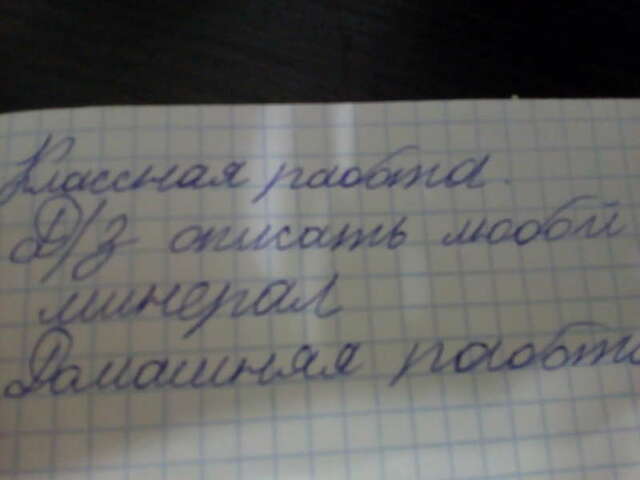 Классная раобта.
Д/З описать любой
минерал
Домашняя раобта